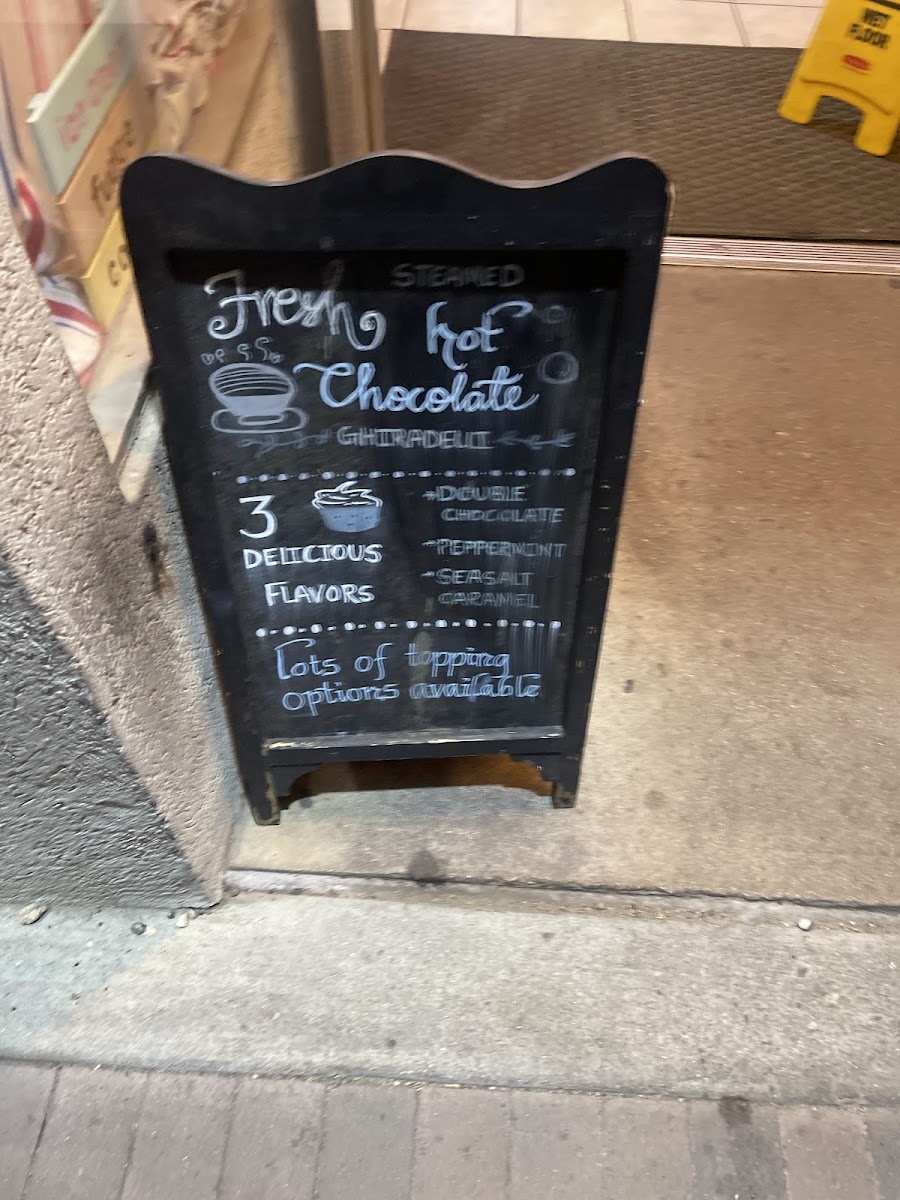 WET
FLOOR
Ice cream
Fudge
STEAMED
Fresh hot
Chocolate
GHIRADELLI
3
DELICIOUS
FLAVORS
DOUBLE
CHOCOLATE
PEPPERMINT
SEASALT
CARAMEL
Lots of topping
options available